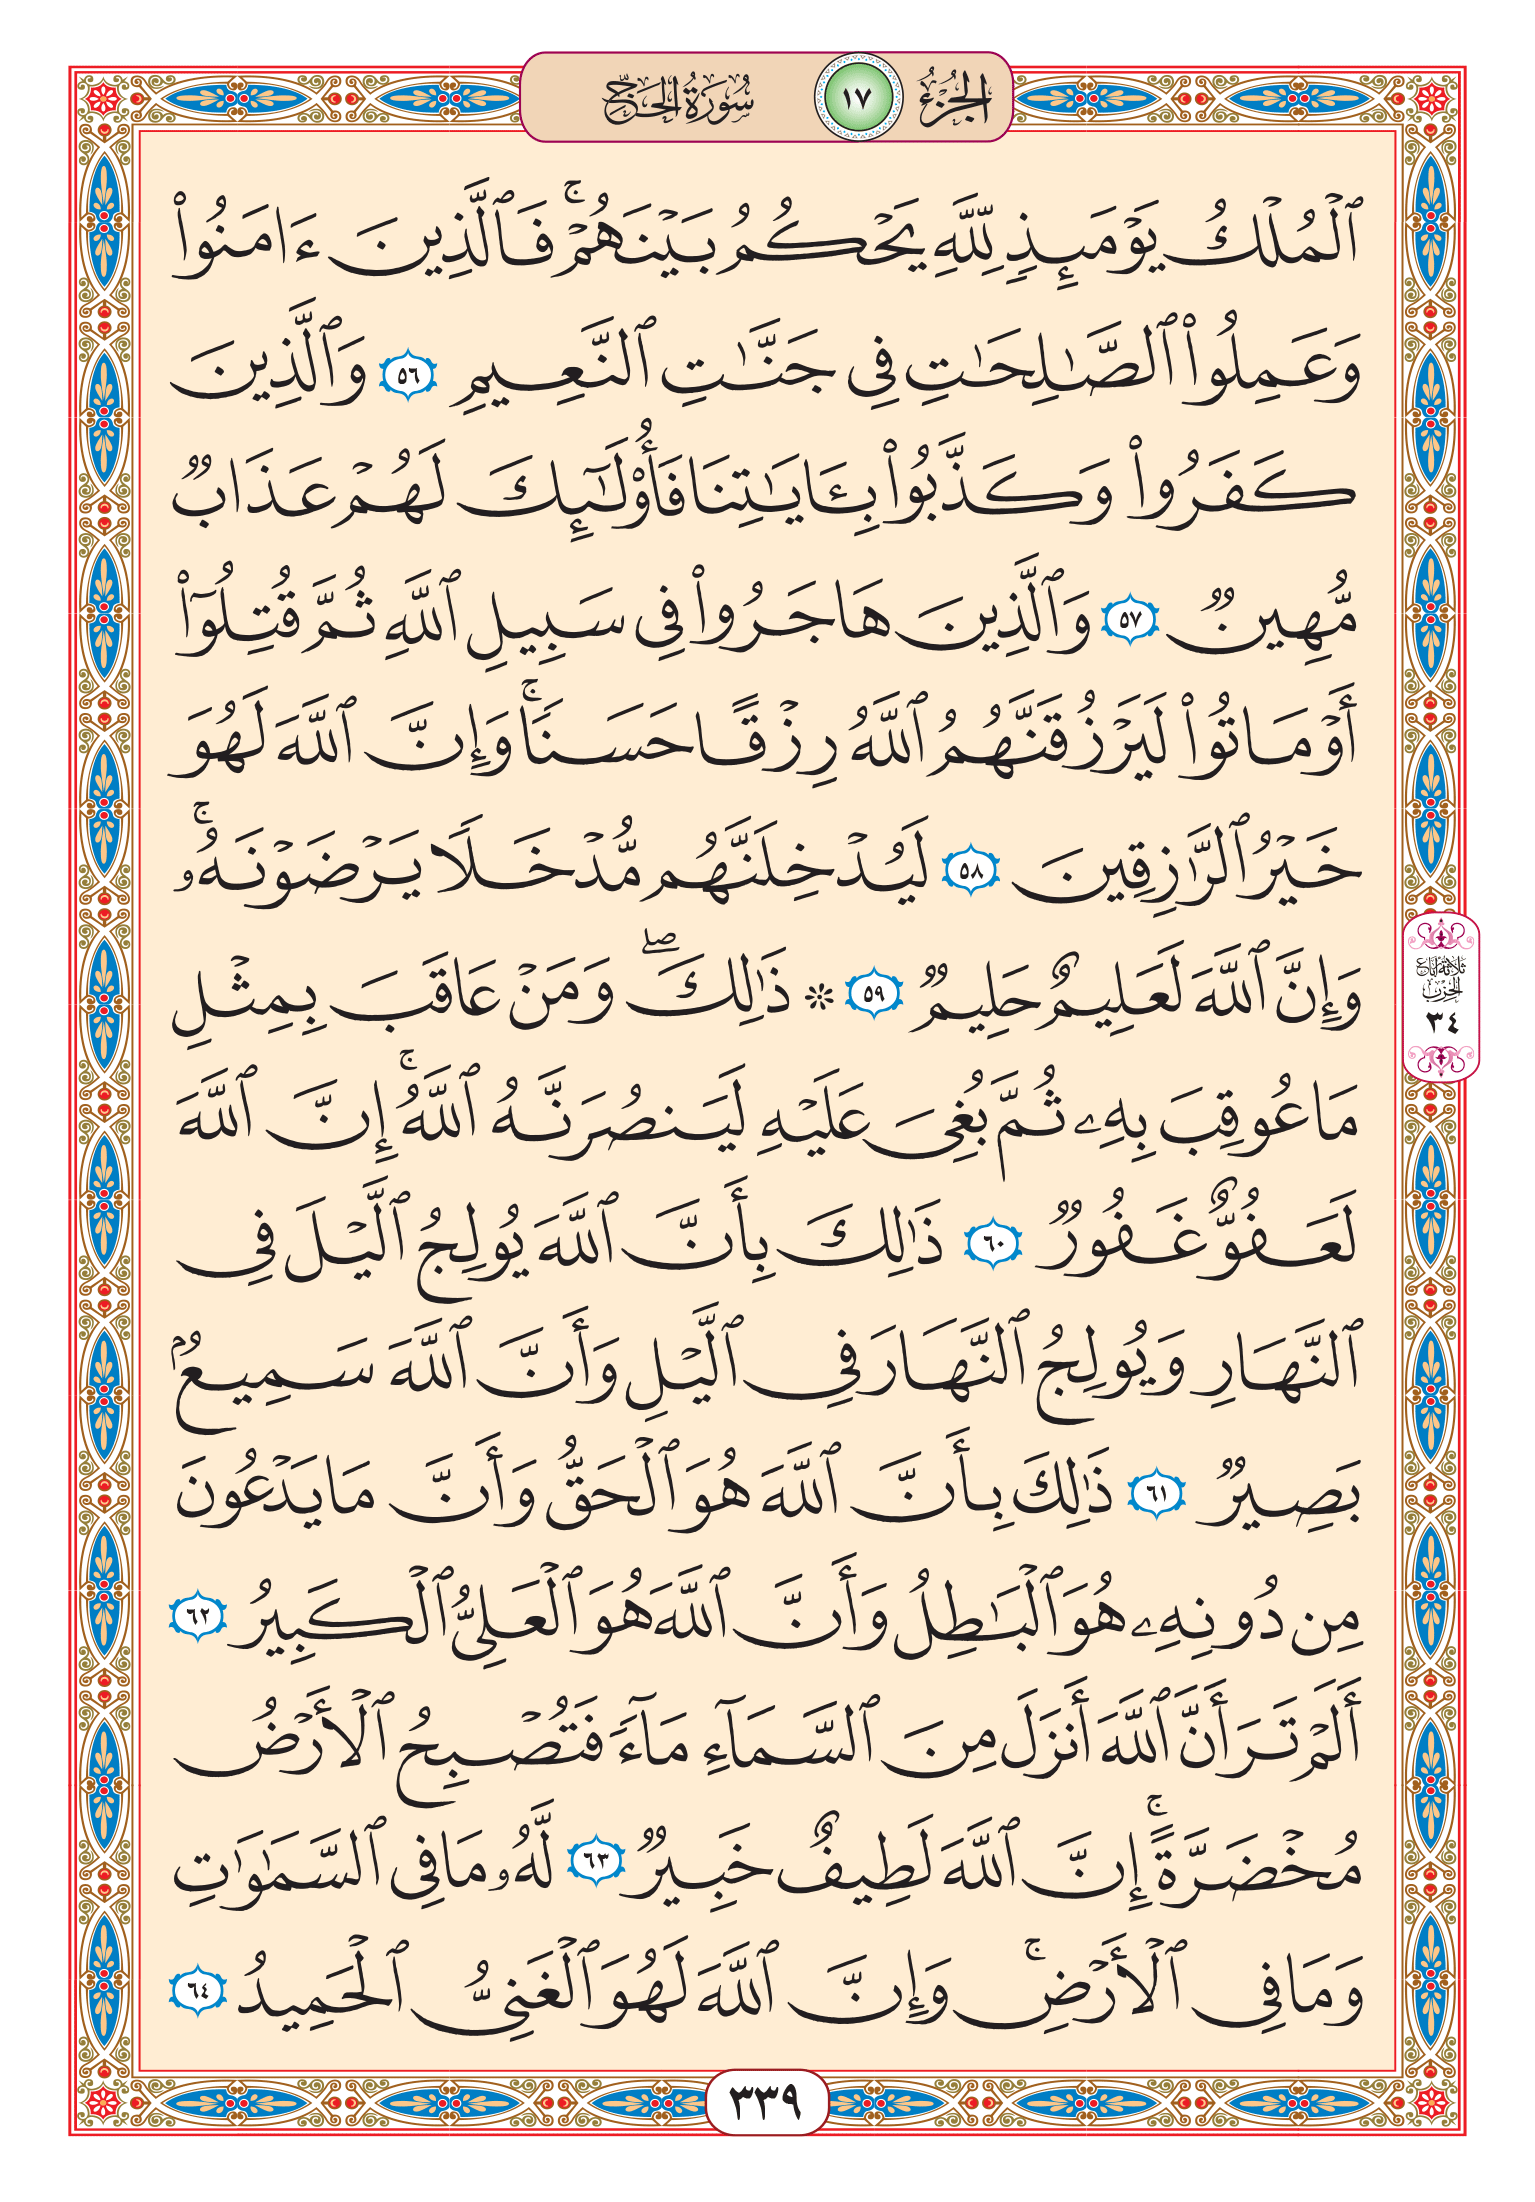 الجزء ١٧ سورة الحج
ٱلْمُلْكُ يَوْمَئِذٍ لِّلَّهِ يَحْكُمُ بَيْنَهُمْ ۚ فَٱلَّذِينَ ءَامَنُوا۟
وَعَمِلُوا۟ ٱلصَّـٰلِحَـٰتِ فِى جَنَّـٰتِ ٱلنَّعِيمِ ٥٦ وَٱلَّذِينَ
كَفَرُوا۟ وَكَذَّبُوا۟ بِـَٔايَـٰتِنَا فَأُو۟لَـٰٓئِكَ لَهُمْ عَذَابٌ
مُّهِينٌ ٥٧ وَٱلَّذِينَ هَاجَرُوا۟ فِى سَبِيلِ ٱللَّهِ ثُمَّ قُتِلُوٓا۟
أَوْ مَاتُوا۟ لَيَرْزُقَنَّهُمُ ٱللَّهُ رِزْقًا حَسَنًا ۚ وَإِنَّ ٱللَّهَ لَهُوَ
خَيْرُ ٱلرَّٰزِقِينَ ٥٨ لَيُدْخِلَنَّهُم مُّدْخَلًا يَرْضَوْنَهُۥ ۚ
وَإِنَّ ٱللَّهَ لَعَلِيمٌ حَلِيمٌ ٥٩ ۞ ذَٰلِكَ ۖ وَمَنْ عَاقَبَ بِمِثْلِ
مَا عُوقِبَ بِهِۦ ثُمَّ بُغِىَ عَلَيْهِ لَيَنصُرَنَّهُ ٱللَّهُ ۚ إِنَّ ٱللَّهَ
لَعَفُوٌّ غَفُورٌ ٦٠ ذَٰلِكَ بِأَنَّ ٱللَّهَ يُولِجُ ٱلَّيْلَ فِى
ٱلنَّهَارِ وَيُولِجُ ٱلنَّهَارَ فِى ٱلَّيْلِ وَأَنَّ ٱللَّهَ سَمِيعٌۢ
بَصِيرٌ ٦١ ذَٰلِكَ بِأَنَّ ٱللَّهَ هُوَ ٱلْحَقُّ وَأَنَّ مَا يَدْعُونَ
مِن دُونِهِۦ هُوَ ٱلْبَـٰطِلُ وَأَنَّ ٱللَّهَ هُوَ ٱلْعَلِىُّ ٱلْكَبِيرُ ٦٢
أَلَمْ تَرَ أَنَّ ٱللَّهَ أَنزَلَ مِنَ ٱلسَّمَآءِ مَآءً فَتُصْبِحُ ٱلْأَرْضُ
مُخْضَرَّةً ۗ إِنَّ ٱللَّهَ لَطِيفٌ خَبِيرٌ ٦٣ لَّهُۥ مَا فِى ٱلسَّمَـٰوَٰتِ
وَمَا فِى ٱلْأَرْضِ ۚ وَإِنَّ ٱللَّهَ لَهُوَ ٱلْغَنِىُّ ٱلْحَمِيدُ ٦٤
ثلاثة أرباع
الحزب
٣٤
٣٣٩